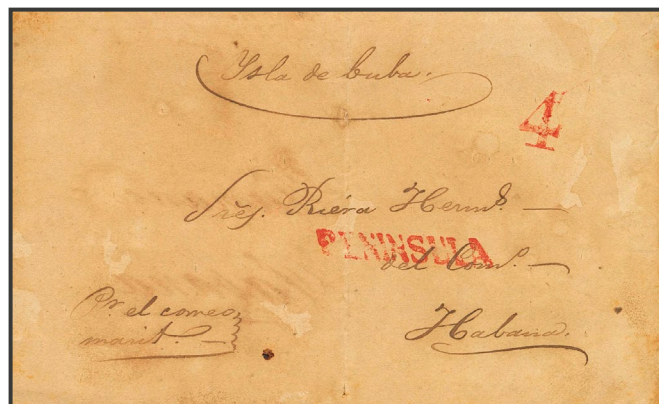 Ysla de Cuba.
4
Sres. Riera Hermˢ.
PENINSULA
del Comº.
Pr. el correo
marit.
Habana.